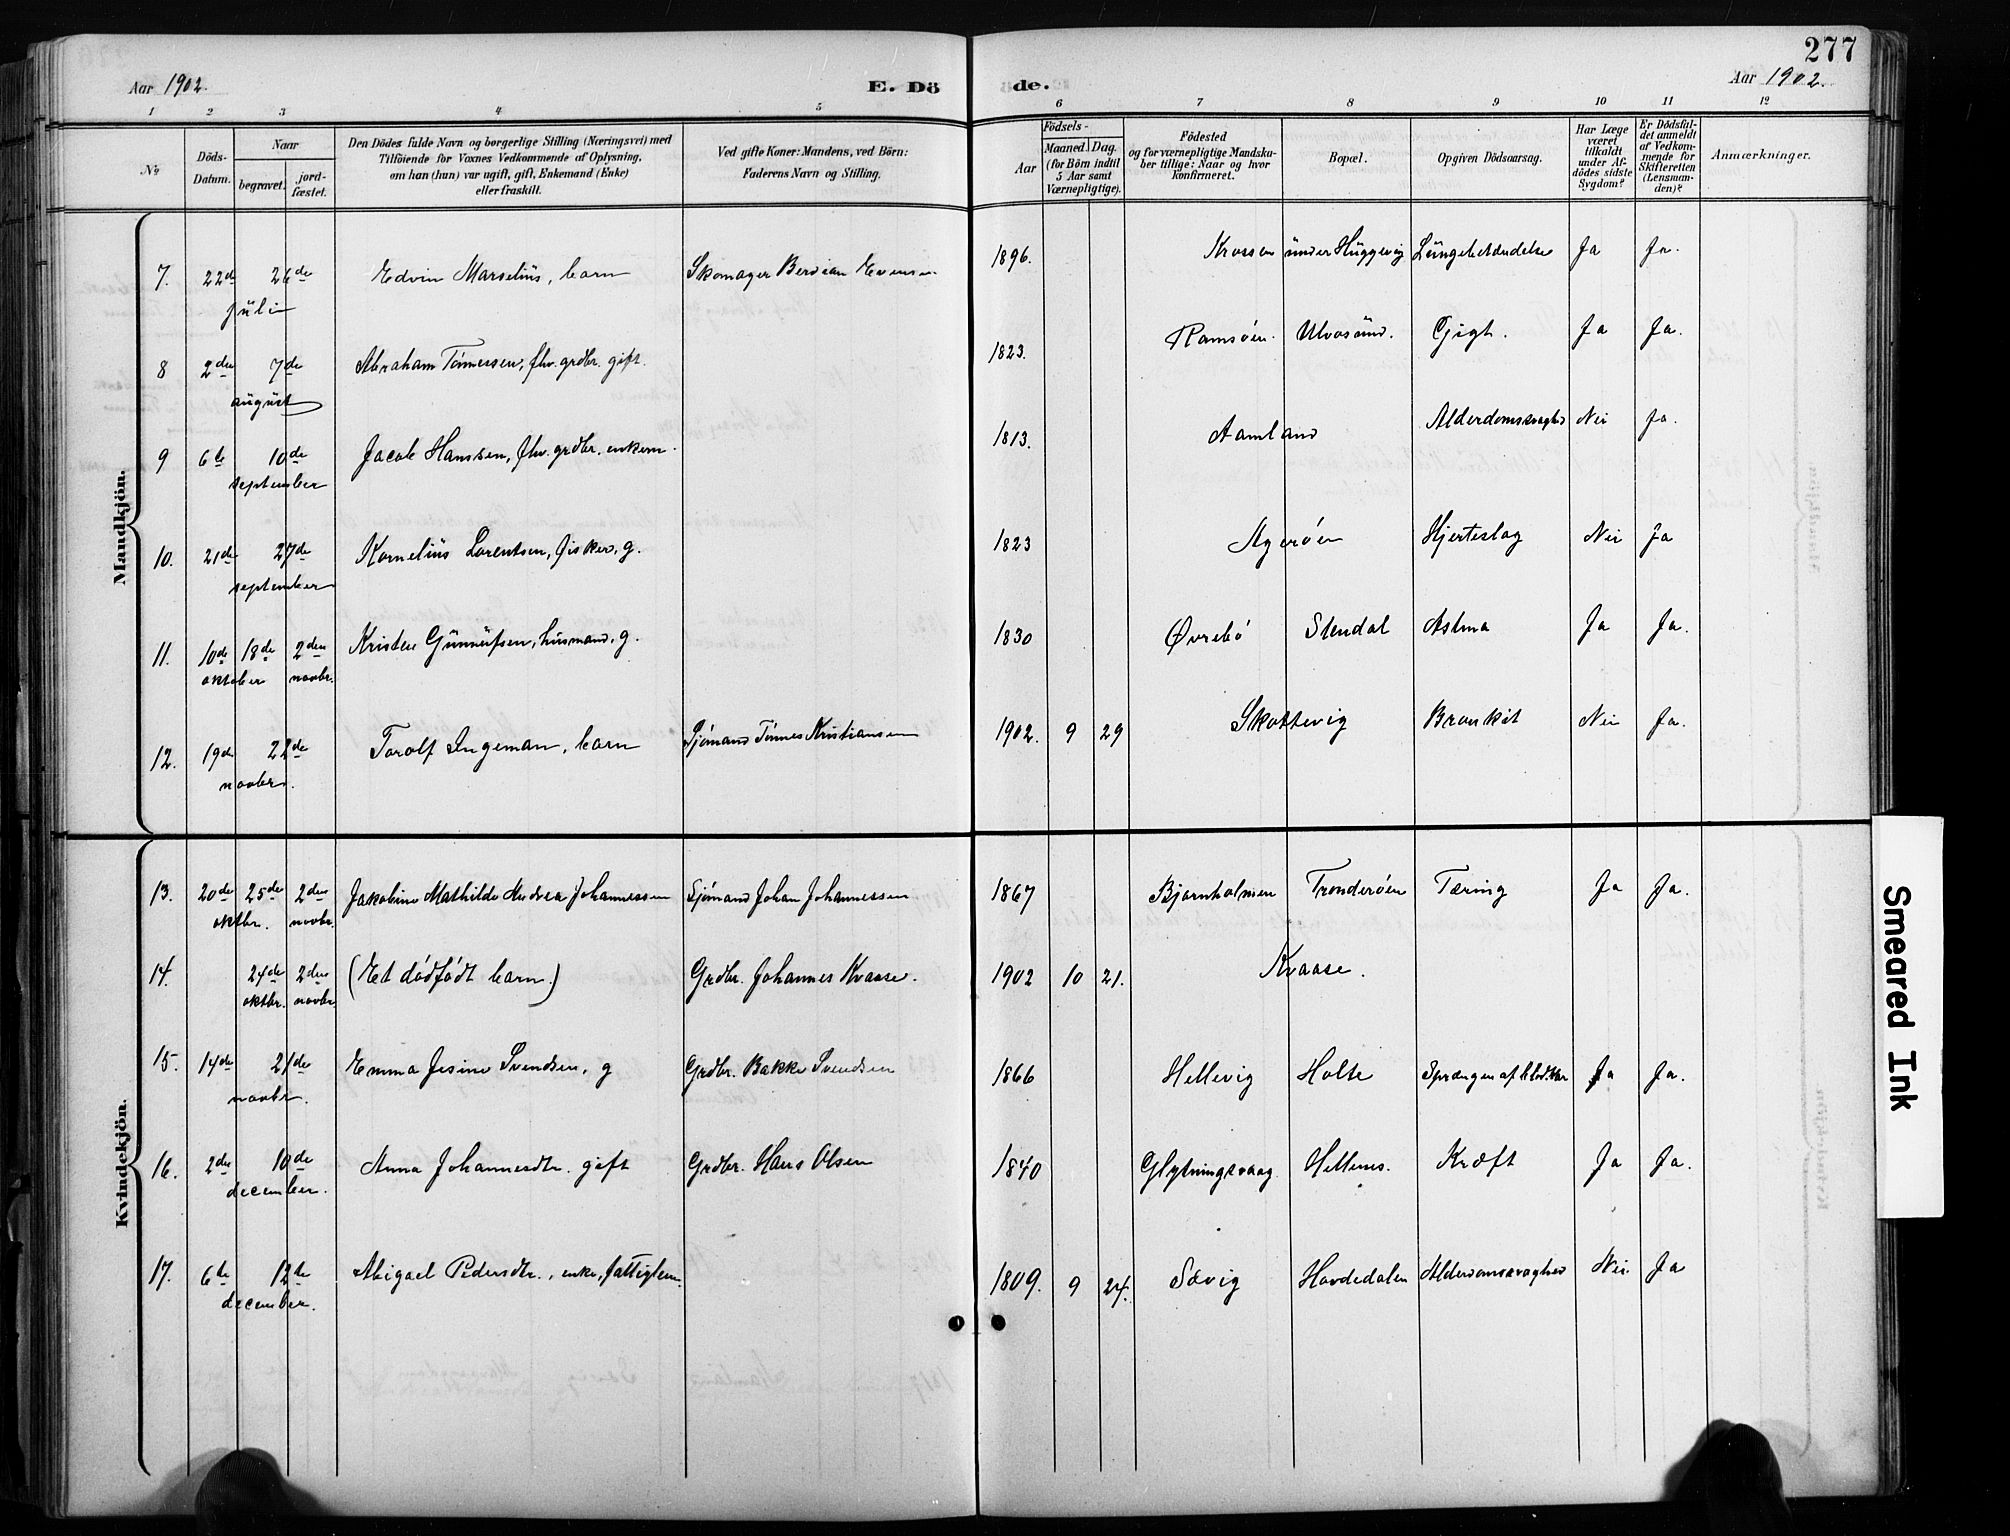 277
Aar 1902.
E. Dö
de.
Aar 1902.
1 2 3 4 5 6 7 8 9 10 11 12
No
Döds-
Datum.
Naar
begravet.
jord-
fæstet.
Den Dödes fulde Navn og borgerlige Stilling (Næringsvei) med
Tilföiende for Voxnes Vedkommende af Oplysning,
om han (hun) var ugift, gift, Enkemand (Enke)
eller fraskilt.
Ved gifte Koner: Mandens, ved Börn:
Faderens Navn og Stilling.
Födsels-
Aar
Maaned. Dag.
(for Börn indtil
5 Aar samt
Værnepligtige).
Födested
og for værnepligtige Mandska-
ber tillige: Naar og hvor
konfirmeret.
Bopæl.
Opgiven Dödsaarsag.
Har Læge
været
tilkaldt
under Af-
dödes sidste
Sygdom?
Er Dödsfal-
det anmeldt
af Vedkom-
mende for
Skifteretten
(Lensman-
den)?
Anmærkninger.
Mandkjön.
7. 22de 26de Edvin Marselius, barn Skomager Bersian Evensen 1896. Krossen under Huggevig Lungebetændelse Ja Ja.
juli
8 2den 7de Abraham Tönnessen, fhv. grdbr. gift. 1823. Ramsöen. Ulvosund. Gigt. Ja Ja.
august
9 6te 10de Jacob Hanssen, fhv. grdbr. enkem. 1813. Aamland Alderdomssvaghed Nei Ja.
september
10. 21de 27de Kornelius Lorentsen, fisker, g. 1823 Ageröen Hjerteslag Nei Ja
september
11. 10de 18de 2den Kristen Gunnufsen, husmand, g. 1830 Øvrebö Stendal Astma Ja Ja.
oktober novbr.
12. 19de 22de Torolf Ingeman, barn Sjömand Tönnes Kristiansen 1902. 9 29 Skottevig Bronkit Nei Ja.
novbr.
Kvindekjön.
13. 20de 25de 2den Jakobine Mathilde Andrea Johannessen Sjömand Johan Johannessen 1867 Bjornholmen Tronderöen Tæring Ja Ja.
oktbr. novbr.
14. 24de 2den (Et dödfödt barn.) Grdbr. Johannes Kvaase. 1902 10 21. Kvaase.
oktbr. novbr.
15. 14de 21de Emma Jesine Svendsen, g Grdbr. Bakke Svendsen 1866 Hellevig Holte Sprængen af blodkar Ja Ja.
novbr.
16. 2den 10de Anna Johannesdtr. gift Grdbr. Hans Olsen 1840 Glytningsvaag Hellenes. Kræft Ja Ja.
december.
17. 6te 12te Abigael Pedersdtr., enke, fattiglem. 1809. 9 24. Sævig Hovdedalen Alderdomssvaghed Nei. Ja
december.
Smeared Ink